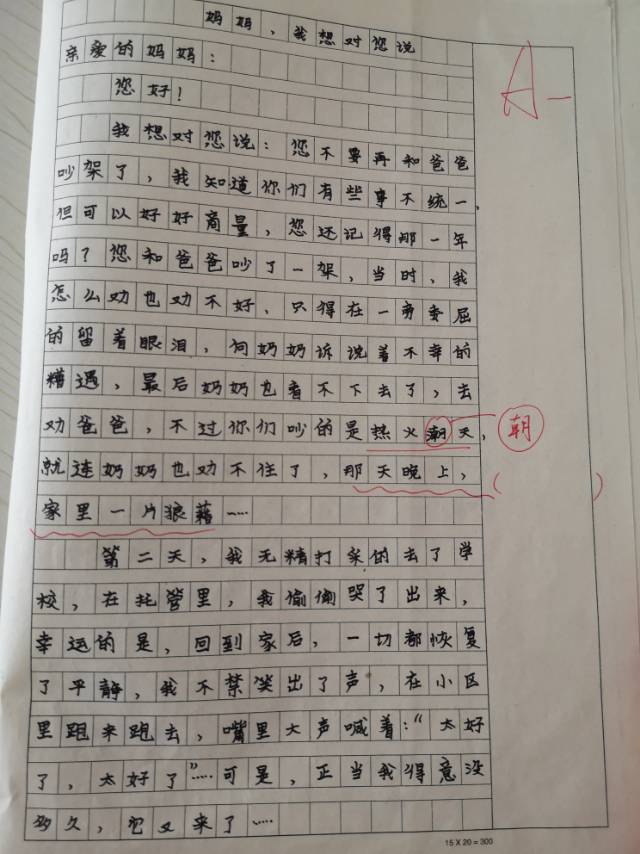 妈妈，我想对您说
A-
亲爱的妈妈：
您好！
我想对您说：您不要再和爸爸
吵架了，我知道你们有些事不统一，
但可以好好商量，您还记得那一年
吗？您和爸爸吵了一架，当时，我
怎么劝也劝不好，只得在一旁委屈
的留着眼泪，向奶奶诉说着不幸的
糟遇，最后奶奶也看不下去了，去
劝爸爸，不过你们吵的是热火潮天，
朝
就连奶奶也劝不住了，那天晚上，
( )
家里一片狼藉……
第二天，我无精打采的去了学
校，在托管里，我偷偷哭了出来，
幸运的是，回到家后，一切都恢复
了平静，我不禁笑出了声，在小区
里跑来跑去，嘴里大声喊着：“太好
了，太好了”……可是，正当我得意没
多久，它又来了……
15 X 20 = 300